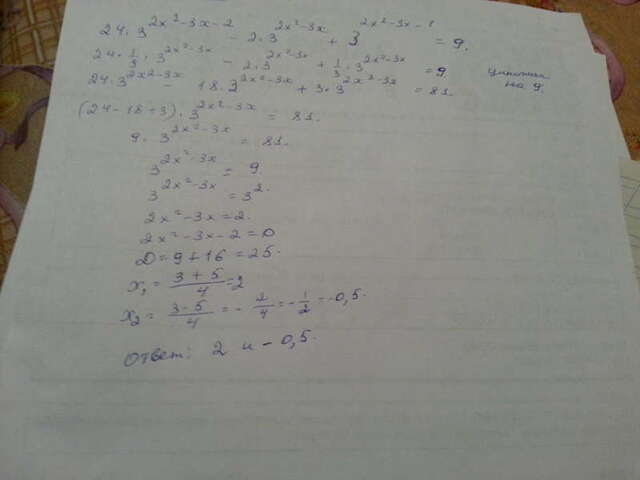 24·3^(2x²-3x-2) - 2·3^(2x²-3x) + 3^(2x²-3x-1) = 9.
24·1/9·3^(2x²-3x) - 2·3^(2x²-3x) + 1/3·3^(2x²-3x) = 9.
24·3^(2x²-3x) - 18·3^(2x²-3x) + 3·3^(2x²-3x) = 81.
на 9
(24-18+3)·3^(2x²-3x) = 81.
9·3^(2x²-3x) = 81.
3^(2x²-3x) = 9.
3^(2x²-3x) = 3².
2x²-3x=2.
2x²-3x-2=0
D=9+16=25.
x₁ = (3+5)/4 = 2
x₂ = (3-5)/4 = -2/4 = -1/2 = -0,5.
Ответ: 2 и -0,5.